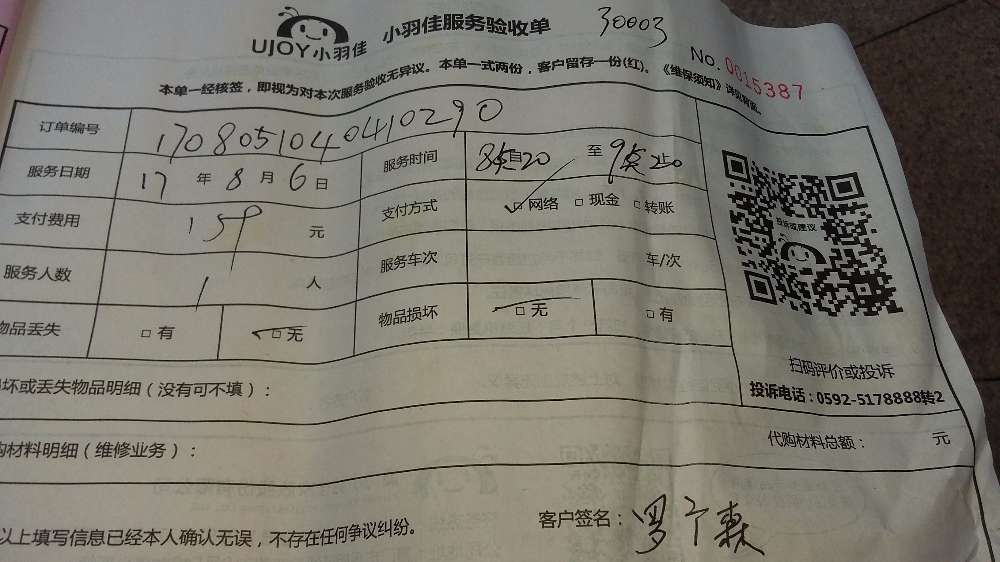 UJOY小羽佳 小羽佳服务验收单 30003
No. 0015387
本单一经核签，即视为对本次服务验收无异议。本单一式两份，客户留存一份(红)。《维保须知》详见背面。
订单编号 1708051040410290
服务日期 17 年 8 月 6 日 服务时间 8点自20 至 9点20
支付费用 159 元 支付方式 ☑网络 □现金 □转账
服务人数 1 人 服务车次 车/次
物品丢失 □有 ☑无 物品损坏 ☑无 □有
投诉或建议
扫码评价或投诉
投诉电话：0592-5178888转2
坏或丢失物品明细（没有可不填）：
购材料明细（维修业务）： 代购材料总额： 元
以上填写信息已经本人确认无误，不存在任何争议纠纷。 客户签名：